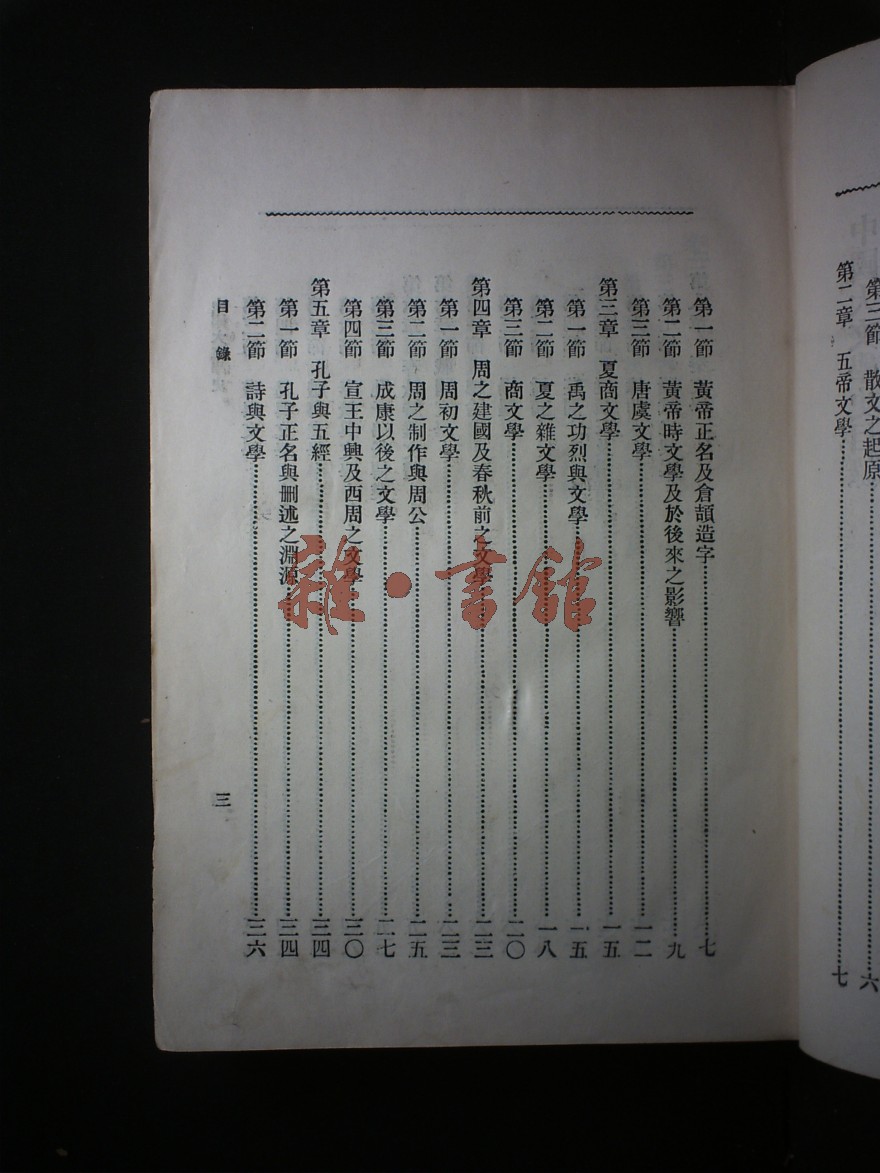 第三節 散文之起原……六
第二章 五帝文學……七
第一節 黃帝正名及倉頡造字……七
第二節 黃帝時文學及於後來之影響……九
第三節 唐虞文學……一二
第三章 夏商文學……一五
第一節 禹之功烈與文學……一五
第二節 夏之雜文學……一八
第三節 商文學……二〇
第四章 周之建國及春秋前之文學……二三
第一節 周初文學……二三
第二節 周之制作與周公……二五
第三節 成康以後之文學……二七
第四節 宣王中興及西周之文學……三〇
第五章 孔子與五經……三四
第一節 孔子正名與刪述之淵源……三四
第二節 詩與文學……三六
目錄 三
雜·書館